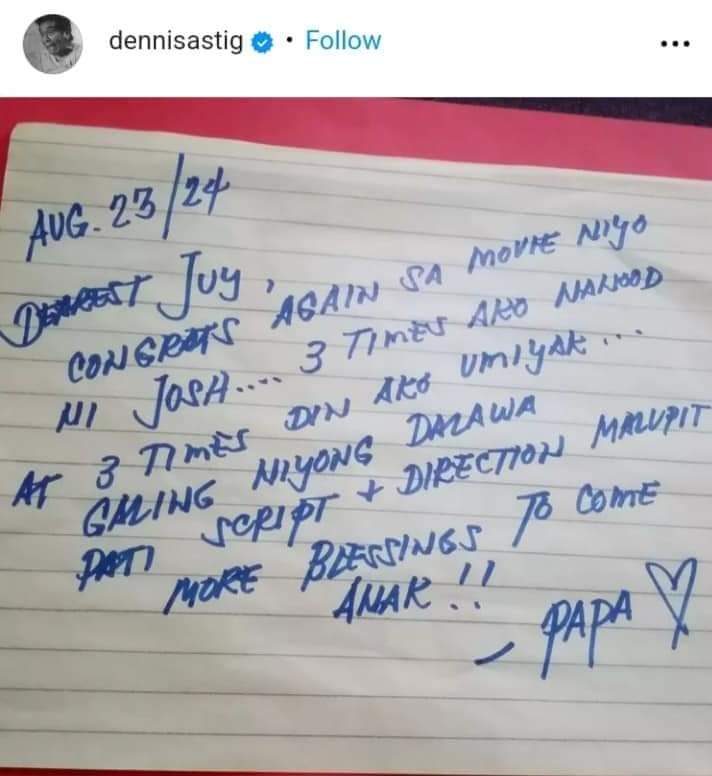 dennisastig • Follow
AUG. 23/24
DEAREST JUY,
CONGRATS AGAIN SA MOVIE NIYO
NI JOSH.... 3 TIMES AKO NANOOD
AT 3 TIMES DIN AKO UMIYAK...
GALING NIYONG DALAWA
PATI SCRIPT + DIRECTION MALUPIT
MORE BLESSINGS TO COME
ANAK!!
- PAPA